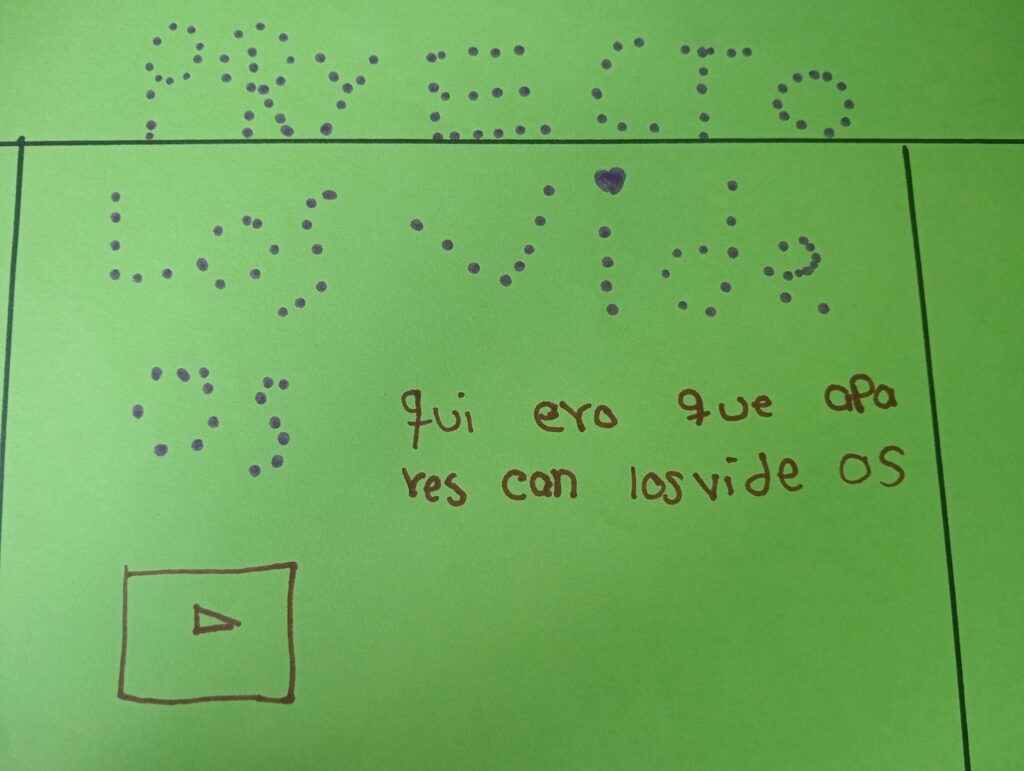 PROYECTO
Los Vide
os
qui ero que apa
res can los vide os